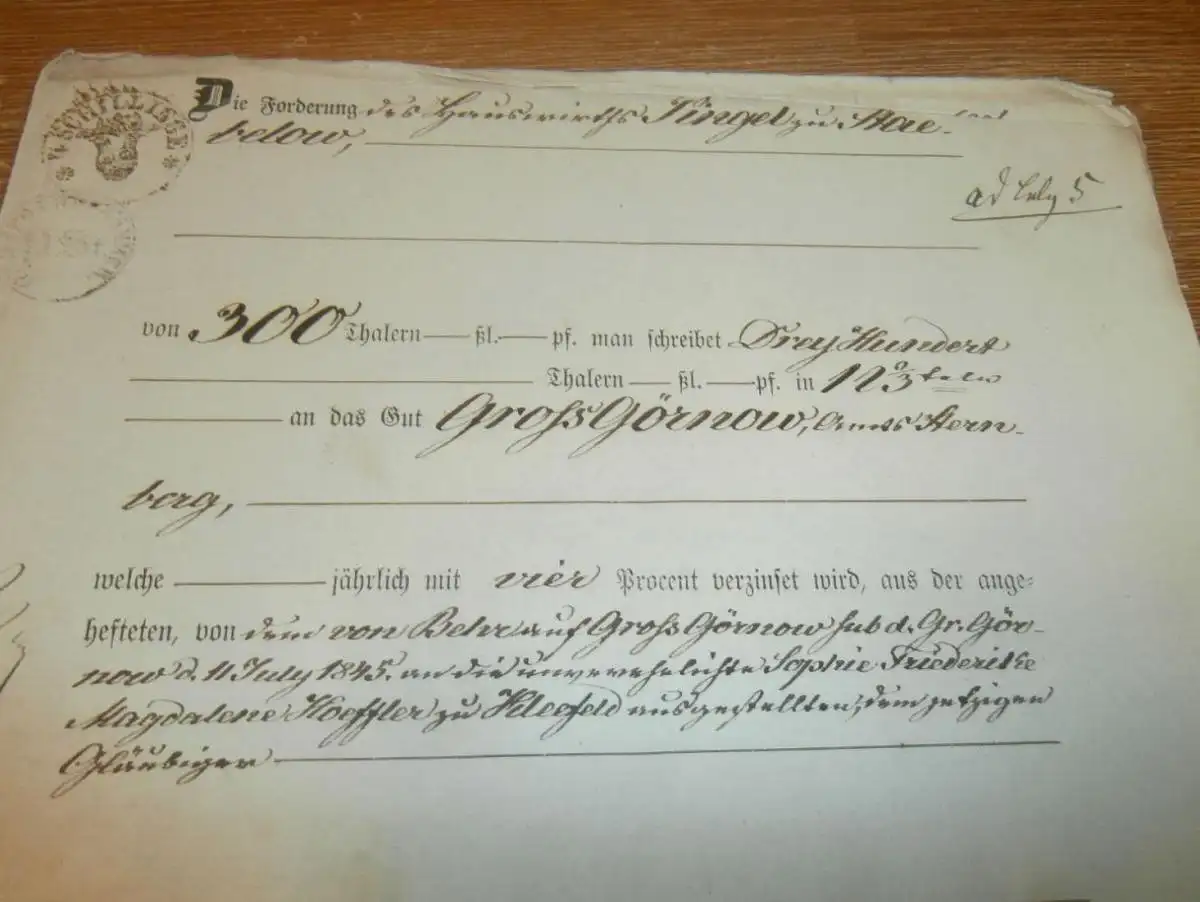 4 SCHILLINGE
Die Forderung des Hauswirths Pingel zu Stae-
below,
von 300 Thalern — ßl. — pf. man schreibet Drey Hundert
Thalern — ßl. — pf. in N 2/3teln
an das Gut Gross Görnow, Amts Stern-
berg,
welche jährlich mit vier Procent verzinset wird, aus der ange-
hefteten, von dem von Behr auf Gross Görnow sub d. Gr. Gör-
now d. 11 July 1845. an die unverehelichte Sophie Friederike
Magdalene Hoeffler zu Kleefeld ausgestellten, dem jetzigen
Gläubiger
ad 5